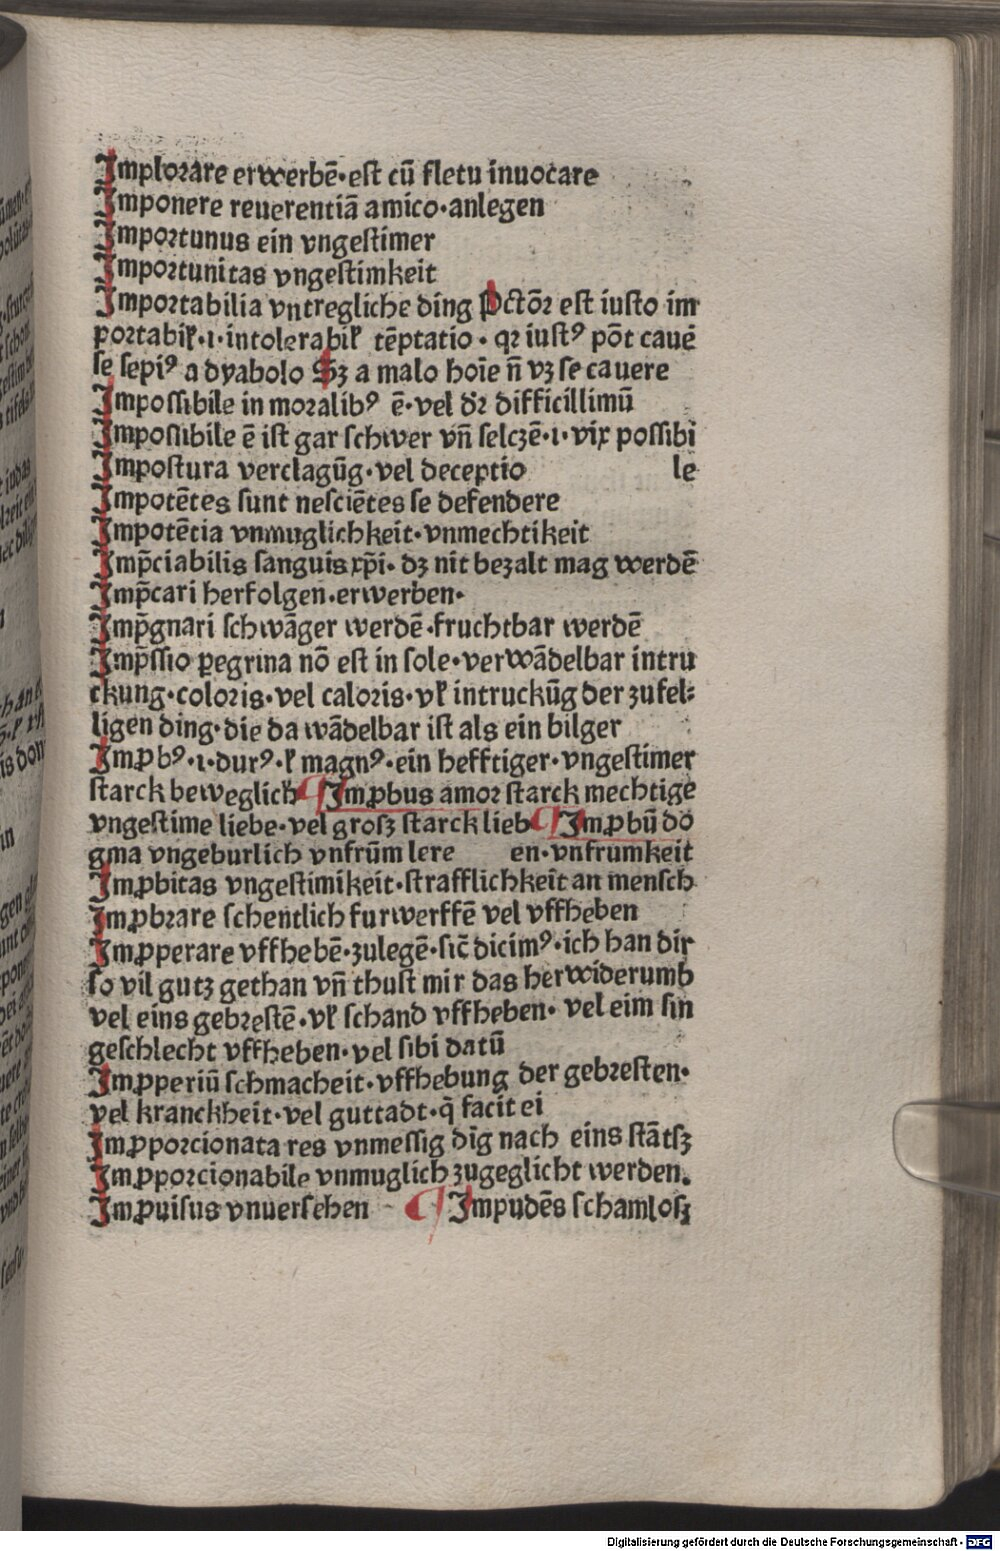 Implorare erwerbē·est cū fletu inuocare
Imponere reuerentiā amico·anlegen
Importunus ein vngestimer
Importunitas vngestimkeit
Importabilia vntregliche ding Pctōr est iusto im
portabiꝉ·ı·intolerabiꝉ tēptatio· qꝛ iustꝰ pōt cauē
se sepiꝰ a dyabolo Sꝫ a malo hoīe n̄ vꝫ se cauere
Impossibile in moralibꝰ ē·vel dꝛ difficillimū
Impossibile ē ist gar schwer vn̄ selczē·ı·vix possibi
Impostura verclagūg·vel deceptio le
Impotētes sunt nesciētes se defendere
Impotētia vnmuglichkeit·vnmechtikeit
Imp̄ciabilis sanguis xp̄i· dꝫ nit bezalt mag werdē
Imp̄cari herfolgen·erwerben·
Imp̄gnari schwāger werdē·fruchtbar werdē
Imp̄ssio ꝑegrina nō est in sole·verwādelbar intru
ckung·coloris·vel caloris·vꝉ intruckūg der zufel⸗
ligen ding·die da wādelbar ist als ein bilger
Imꝓbꝰ·ı·durꝰ·ꝉ magnꝰ·ein hefftiger·vngestimer
starck beweglich ¶ Imꝓbus amor starck mechtige
vngestime liebe·vel grosz starck lieb ¶ Imꝓbū do
gma vngeburlich vnfrūm lere en·vnfrumkeit
Imꝓbitas vngestimikeit·strafflichkeit an mensch
Imꝓbrare schentlich furwerffē vel vffheben
Imꝓperare vffhebē·zulegē·sic̄ dicimꝰ·ich han dir
so vil gutz gethan vn̄ thust mir das herwiderumb
vel eins gebrestē·vꝉ schand vffheben· vel eim sin
geschlecht vffheben·vel sibi datū
Imꝓperiū schmacheit·vffhebung der gebresten·
vel kranckheit·vel guttadt·q̄ facit ei
Imꝓporcionata res vnmessig dīg nach eins stātsz
Imꝓporcionabile vnmuglich zugeglicht werden.
Imꝓuisus vnuersehen ¶ Impudēs schamlosz
Digitalisierung gefördert durch die Deutsche Forschungsgemeinschaft - DFG